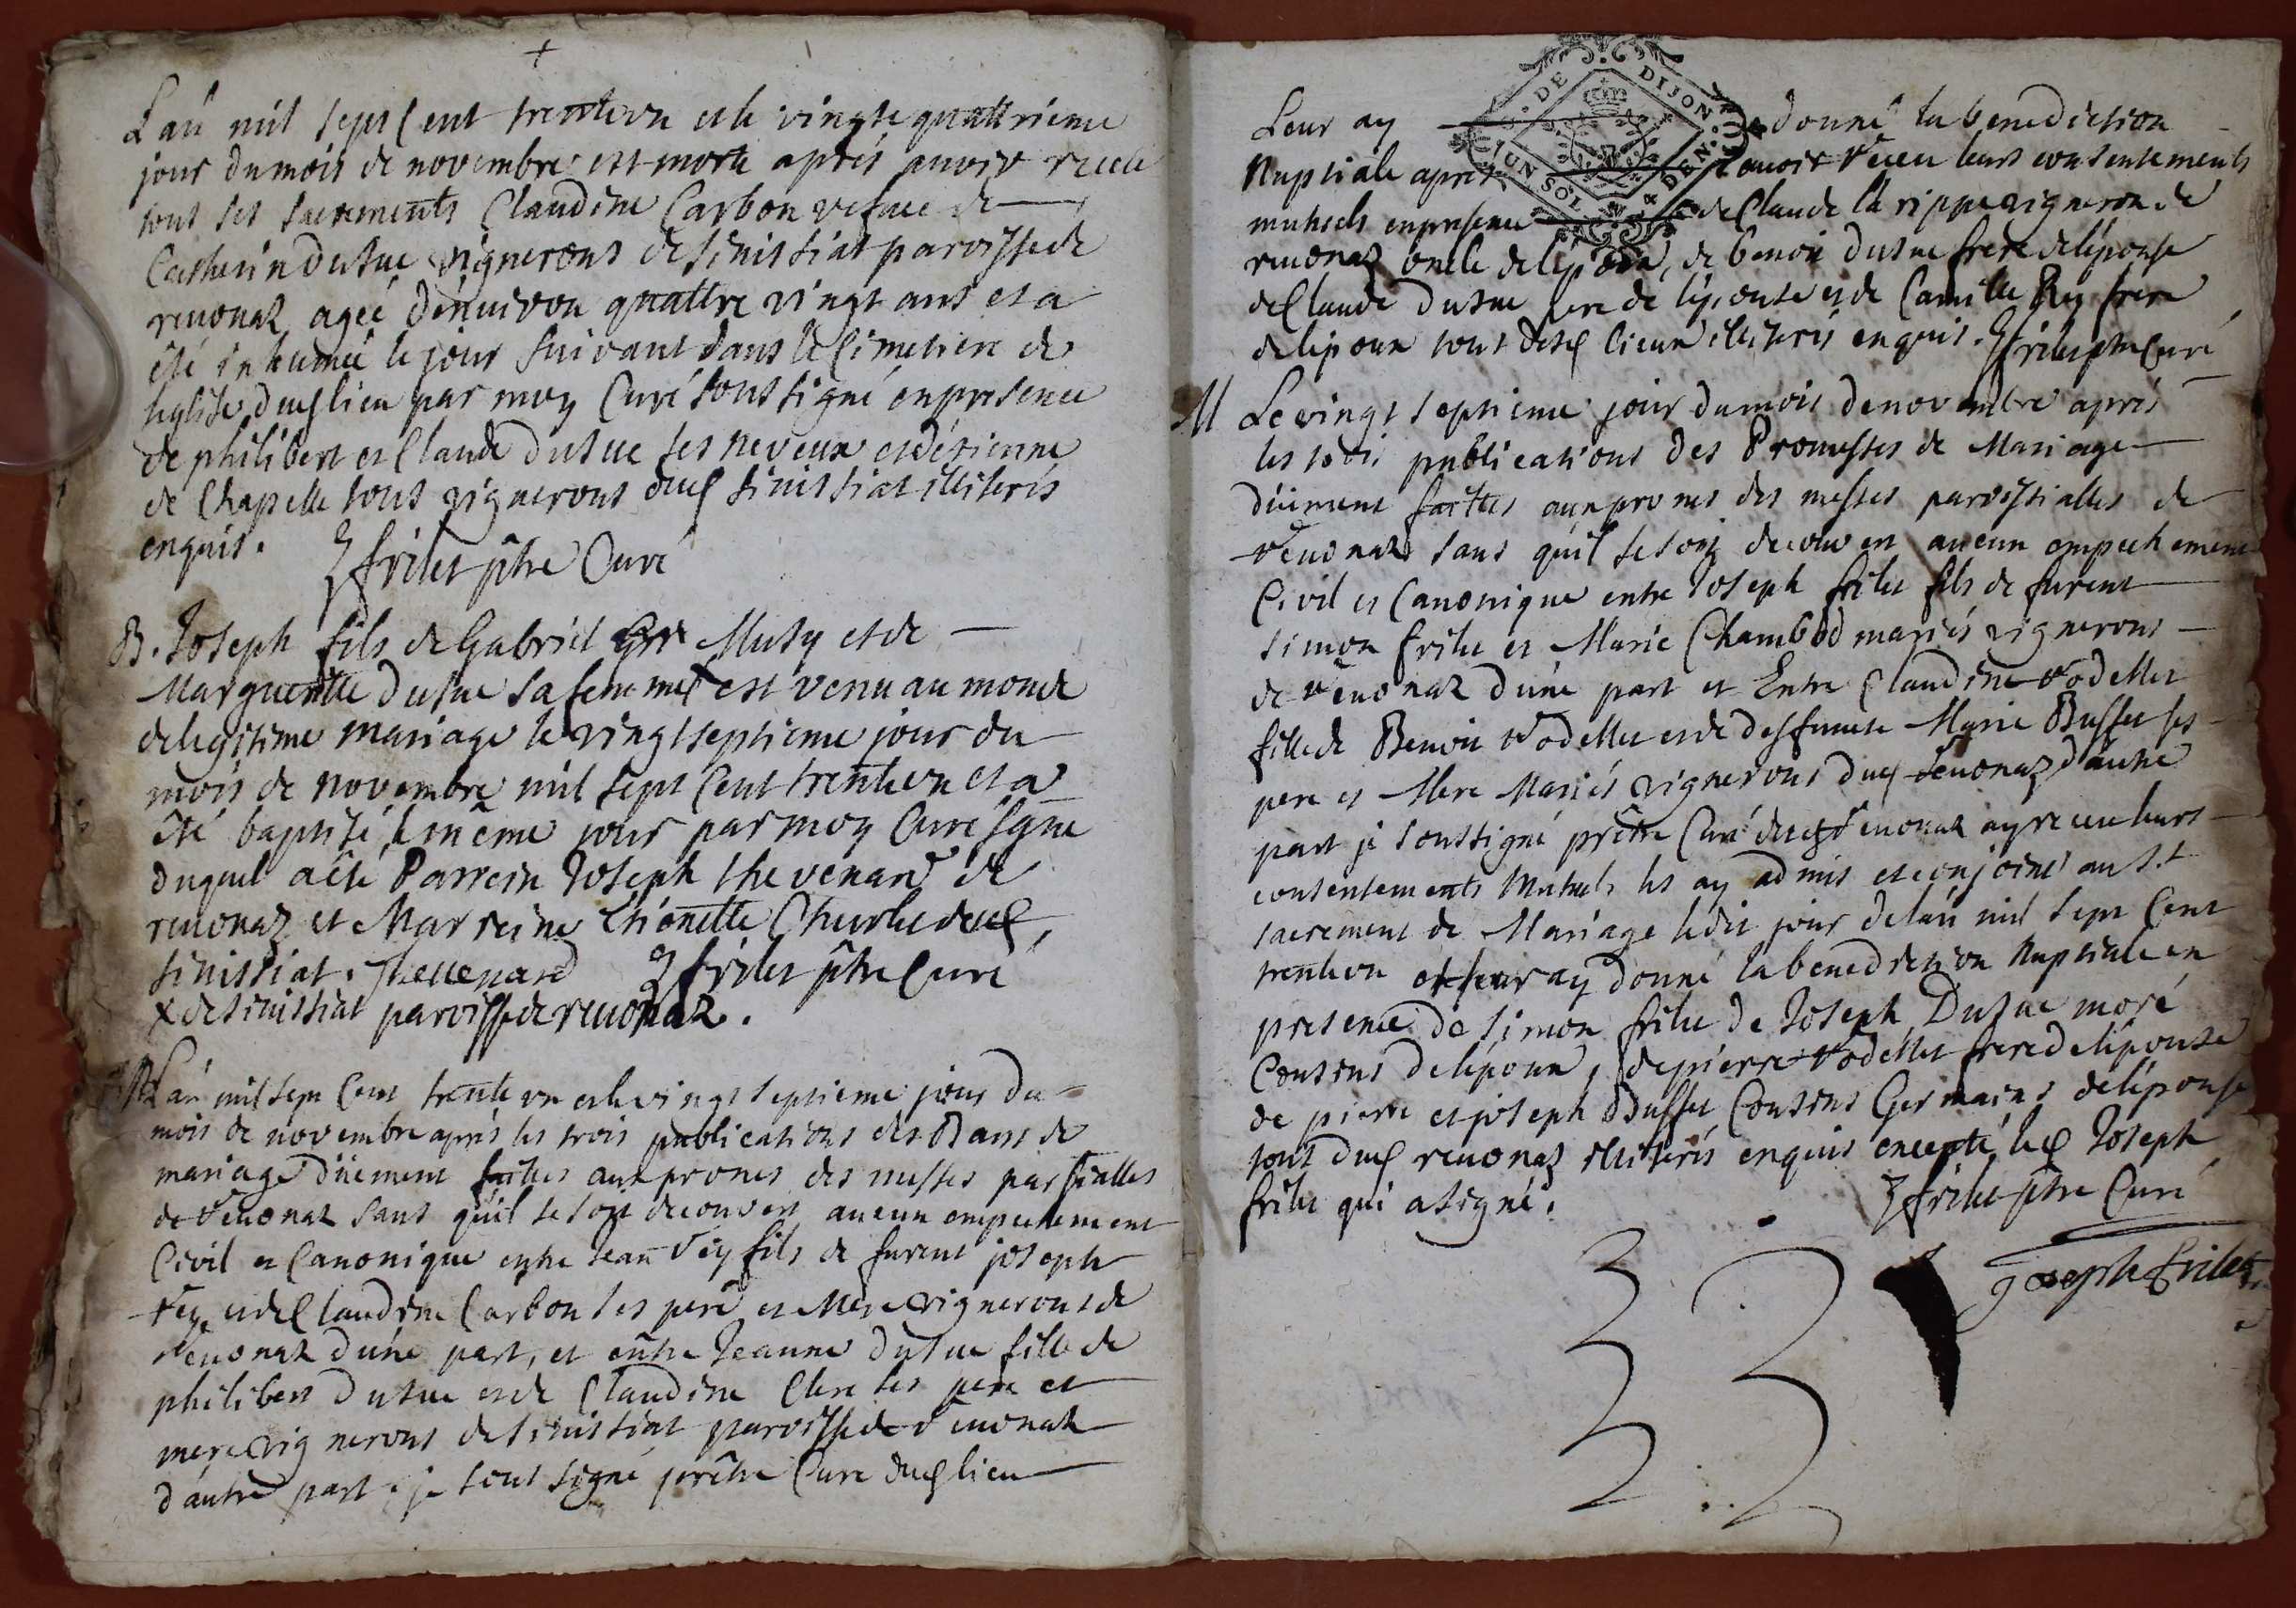 +
L'añ mil sept Cent trente vn et le vingte quattrieme
jour du mois de novembre est morte aprés auoir receu
tous ses sacrements Claudine Carbon vefue de
Catherin Dusue vignerons de sinissiat paroisse de
reuonaz agée d'enuiron quattre vingt ans et a
été inhumée le jour suivant dans le Cimetiere de
leglise duq lieu par moy Curé soussigné en presence
de philibert et Claude dusue ses neveux et d'etienne
de Chapelle tous vignerons duq sinissiat illiterés
enquis. J frilet ptre Curé
B. Joseph fils de Gabriel Musy et de
Margueritte dusue sa femme x est venu au monde
de legitime mariage le vingt septieme jour du
mois de novembre mil sept Cent trente vn et a
été baptisé le même jour par moy Curé sgné
duquel a été Parrein Joseph thevenard de
reuonaz et Marreine thionette Churlet duq
sinissiat. Theuenard J frilet ptre Curé
x de sinissiat paroisse de reuonaz.
M L'añ mil sept Cent trente vn et le vingt septieme jour du
mois de novembre aprés les trois publications des Bans de
mariage düement faittes aux prones des messes parssialles
de reuonaz sans qu'il se soit decouvert aucun empechement
Civil et Canonique entre Jean rey fils de furent joseph
rey et de Claudine Carbon ses pere et Mere vignerons de
reuonaz d'une part, et entre Jeanne dusue fille de
philibert dusue et de Claudine Clere ses pere et
mere vignerons de sinissiat paroisse de reuonaz
d'autre part. je sous signé prêtre Curé duq lieu
DE DIJON
UN SOL 4 DEN.
Leur ay donné la benediction
Nuptiale aprés auoir receu leurs consentements
mutuels en presence de Claude la rippe vigneron de
reuonaz oncle de lépoux, de benoit dusue frere de lépouse
de Claude dusue frere de lépouse et de Camille Rey frere
de lépoux tous desq lieux illiterés enquis. J frilet ptre Curé
M Le vingt septieme jour du mois de novembre aprés
les trois publications des Promesses de Mariage
düement faittes aux prones des messes paroissialles de
reuonaz sans qu'il se soit decouvert aucun empechement
Civil et Canonique entre Joseph frilet fils de furent
simon frilet et Marie Chambod mariés vignerons
de reuonaz d'une part et Entre Claudine rodellet
fille de Benoit rodellet et de deffunte Marie Buffet ses
pere et Mere Mariés vignerons duq reuonaz d'autre
part je soussigné prêtre Curé dudq reuonaz ay receu leurs
consentements Mutuels les ay admis et conjoint au s.t
sacrement de Mariage ledit jour de lañ mil sept Cent
trente vn et leur ay donné la benediction Nuptiale en
presence de simon frilet de Joseph Dusue moré
Cousins de lépoux, de pierre rodellet frere de lépouse
de pierre et joseph Buffet Cousins Germains de lépouse
tous duq reuonaz illiterés enquis excepté led Joseph
frilet qui a signé. J frilet ptre Curé
joseph frilet